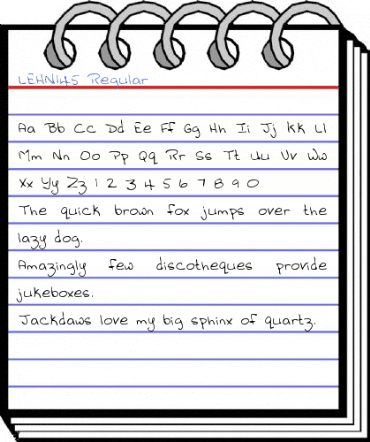 LEHN145 Regular
Aa Bb Cc Dd Ee Ff Gg Hh Ii Jj Kk Ll
Mm Nn Oo Pp Qq Rr Ss Tt Uu Vv Ww
Xx Yy Zz 1 2 3 4 5 6 7 8 9 0
The quick brown fox jumps over the
lazy dog.
Amazingly few discotheques provide
jukeboxes.
Jackdaws love my big sphinx of quartz.